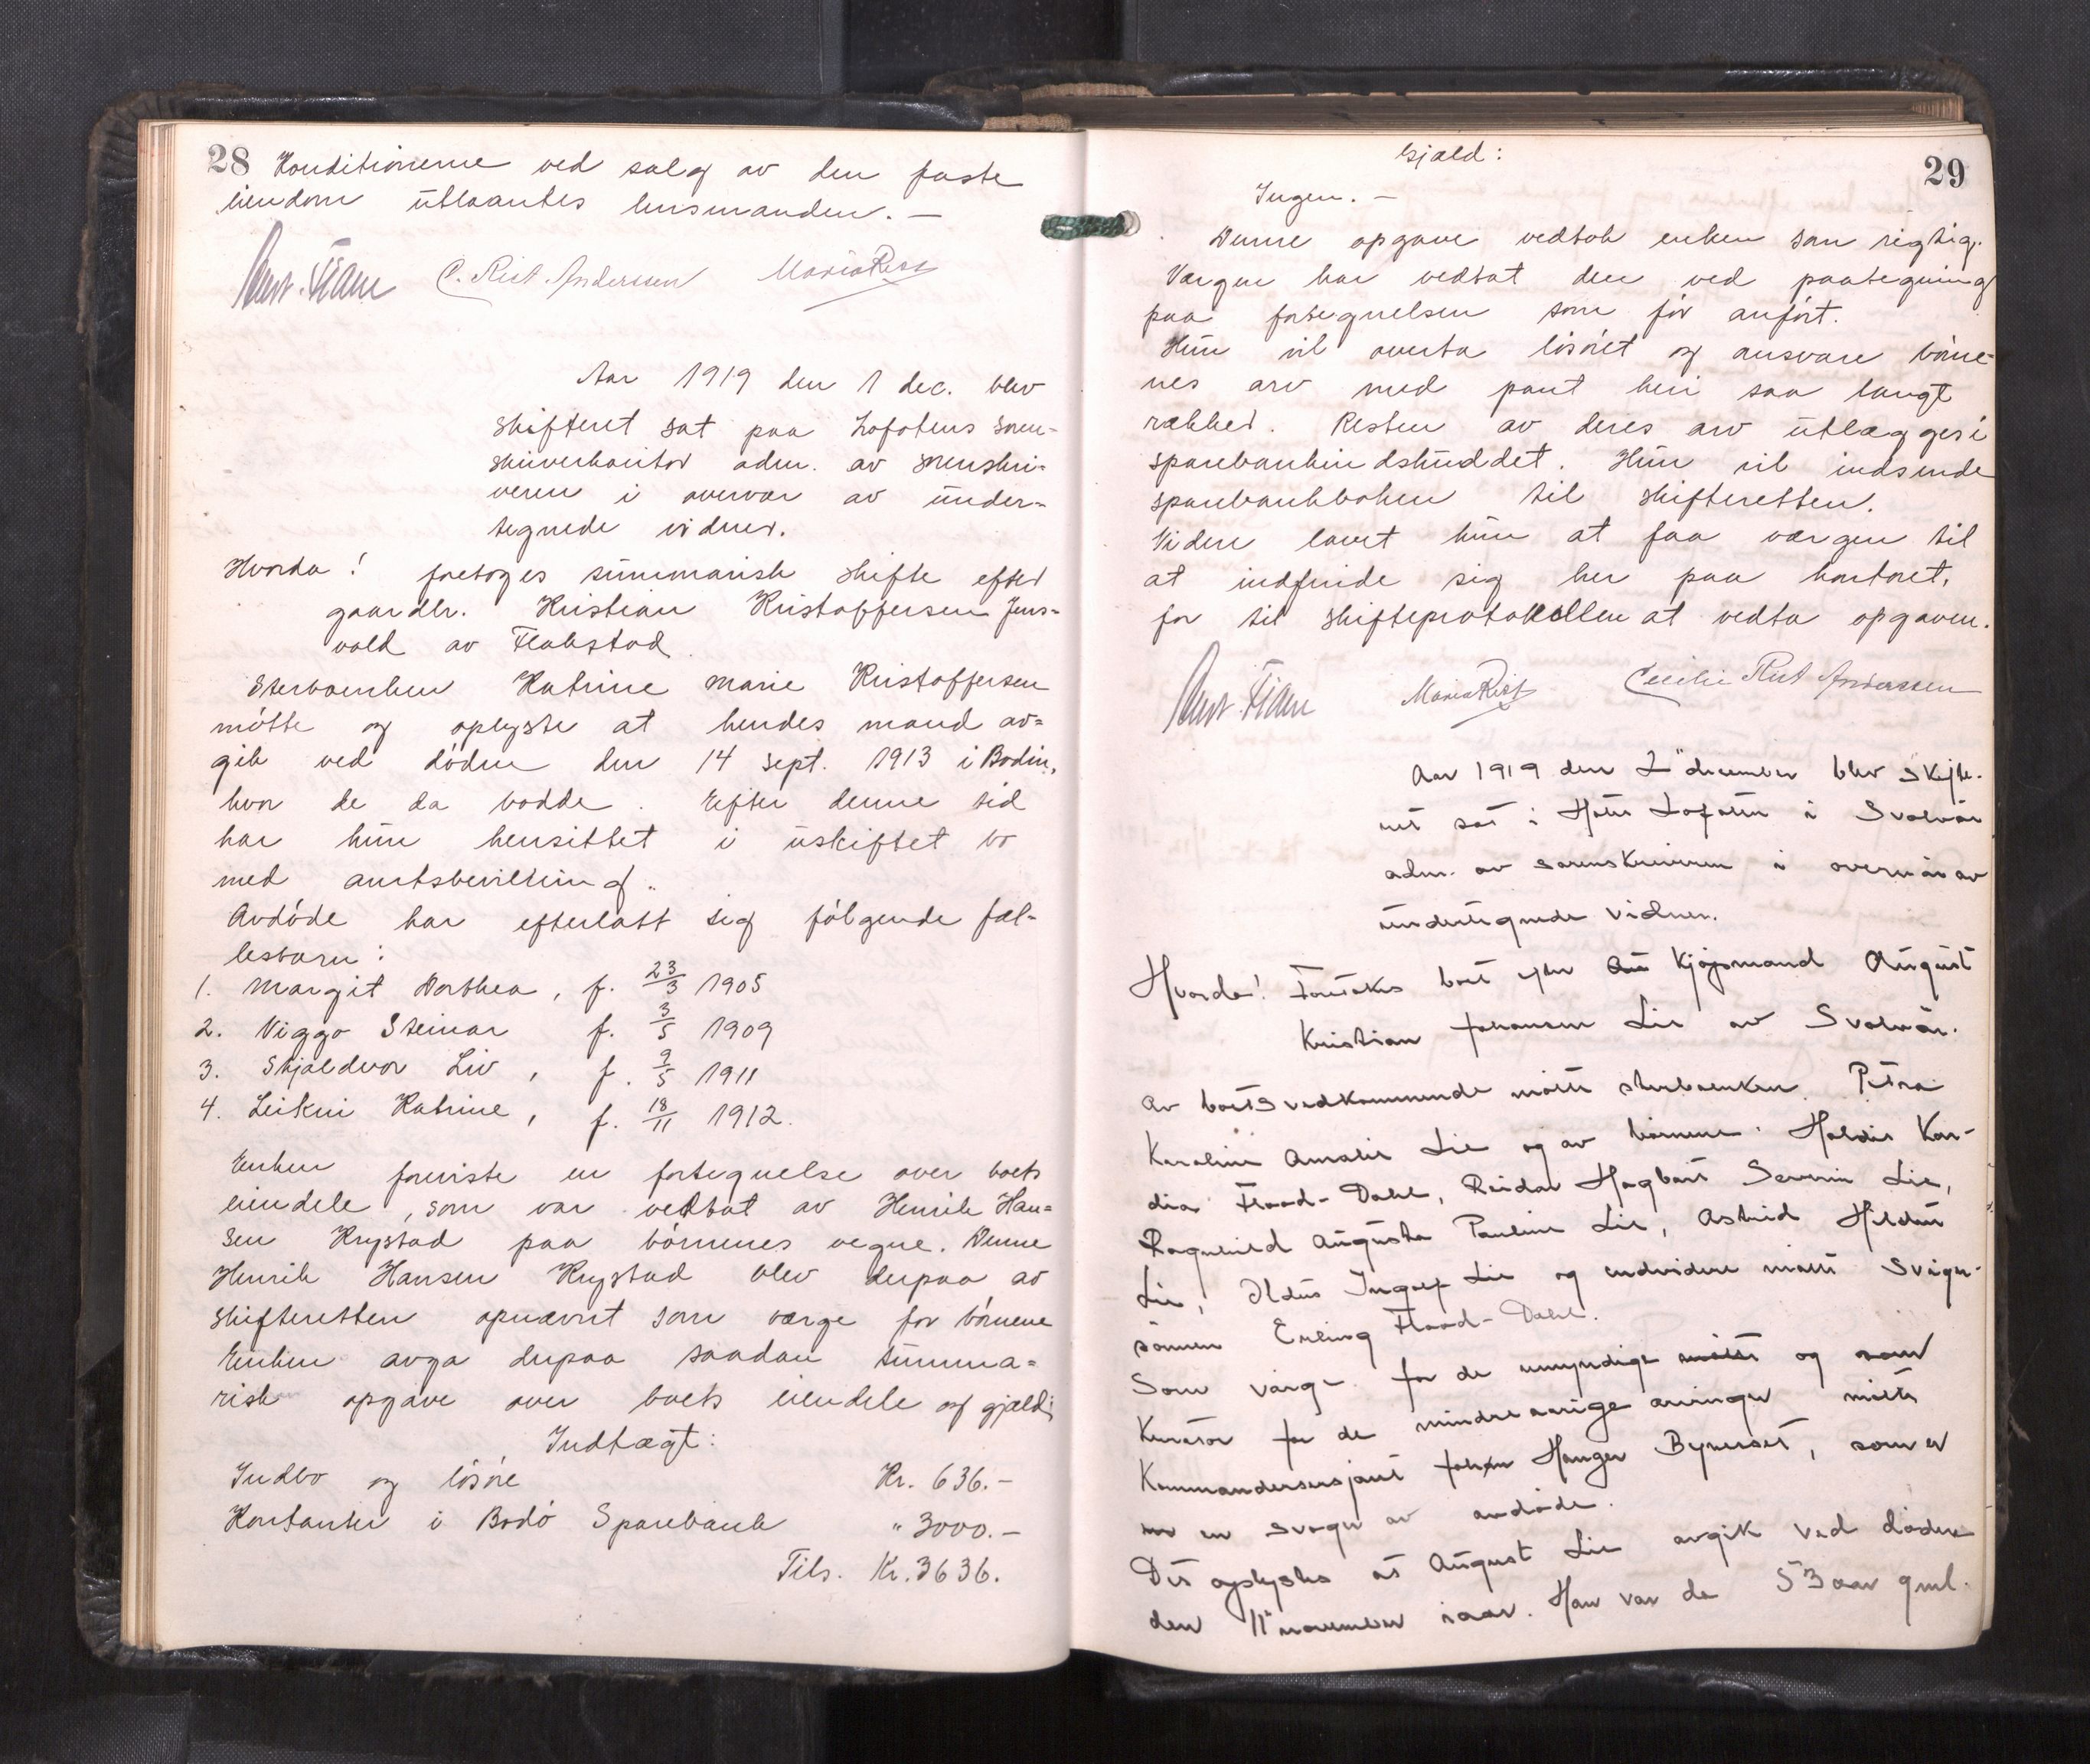 28 Konditionerne ved salg av den faste
eiendom utlaantes lensmanden. —
C. Rist. Anderssen Maria Rist
Aar 1919 den 1 dec. blev
skifteret sat paa Lofotens soren-
skriverkontor adm. av sorenskri-
veren i overvær av under-
tegnede vidner.
Hvorda! foretoges summarisk skifte efter
gaardbr. Kristian Kristoffersen Jens-
vold av Flakstad
Sterboenken Katrine Marie Kristoffersen
møtte og oplyste at hendes mand av-
gik ved døden den 14 sept. 1913 i Bodin,
hvor de da bodde. Efter denne tid
har hun hensittet i uskiftet bo
med amtsbevilling.
Avdøde har efterlatt sig følgende fæl-
lesbarn:
1. Margit Dorthea, f. 23/3 1905
2. Viggo Steinar f. 3/5 1909
3. Skjaldvor Liv, f. 9/5 1911
4. Leikni Katrine, f. 18/11 1912.
Enken foreviste en fortegnelse over boets
eiendele, som var vedtat av Henrik Han-
sen Krystad paa børnenes vegne. Denne
Henrik Hansen Krystad blev derpaa av
skifteretten opnævnt som værge for børnene
Enken avga derpaa saadan summa-
risk opgave over boets eiendele og gjæld:
Indtægt:
Indbo og løsøre Kr. 636.-
Kontanter i Bodø Sparebank " 3000.-
Tils. Kr. 3636.
29
Gjæld:
Ingen. —
Denne opgave vedtok enken som rigtig.
Værgen har vedtat den ved paategning
paa fortegnelsen som før anført.
Hun vil overta løsøret og ansvare børne-
nes arv med pant heri saa langt
rækker. Resten av deres arv utlægges i
sparebankindskuddet. Hun vil indsende
sparebankboken til skifteretten.
Videre lovet hun at faa værgen til
at indfinde sig her paa kontoret,
for til skifteprotokollen at vedta opgaven.
Maria Rist Cecilie Rist Anderssen
Aar 1919 den 2" december blev skifte-
ret sat i Hotel Lofoten i Svolvær
adm. av sorenskriveren i overvær av
undertegnede vidner.
Hvorda! Foretokes boet efter Kjøpmand August
Kristian Johansen Lie av Svolvær.
Av boets vedkommende møtte sterboenken Petra
Karoline Amalie Lie og av børnene: Haldis Kon-
dia Flood-Dahl, Reidar Hagbart Severin Lie,
Ragnhild Augusta Pauline Lie, Astrid Hildur
Lie, Ingolf Lie og endvidere møtte Sviger-
sønnen Erling Flood-Dahl.
Som værge for de umyndige møtte og som
Kurator for de mindreaarige arvinger møtte
Kommandersersjant Johan Hanger Bynerset, som er
en svoger av avdøde.
Det oplystes at August Lie avgik ved døden
den 11" november iaar. Han var da 53 aar gml.